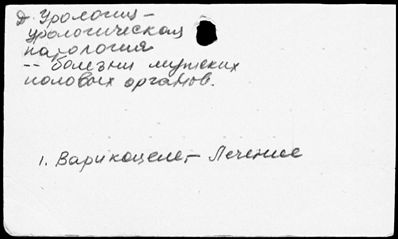 Д. Урология —
урологическая
патология
-- болезни мужских
половых органов.
1. Варикоцеле — Лечение